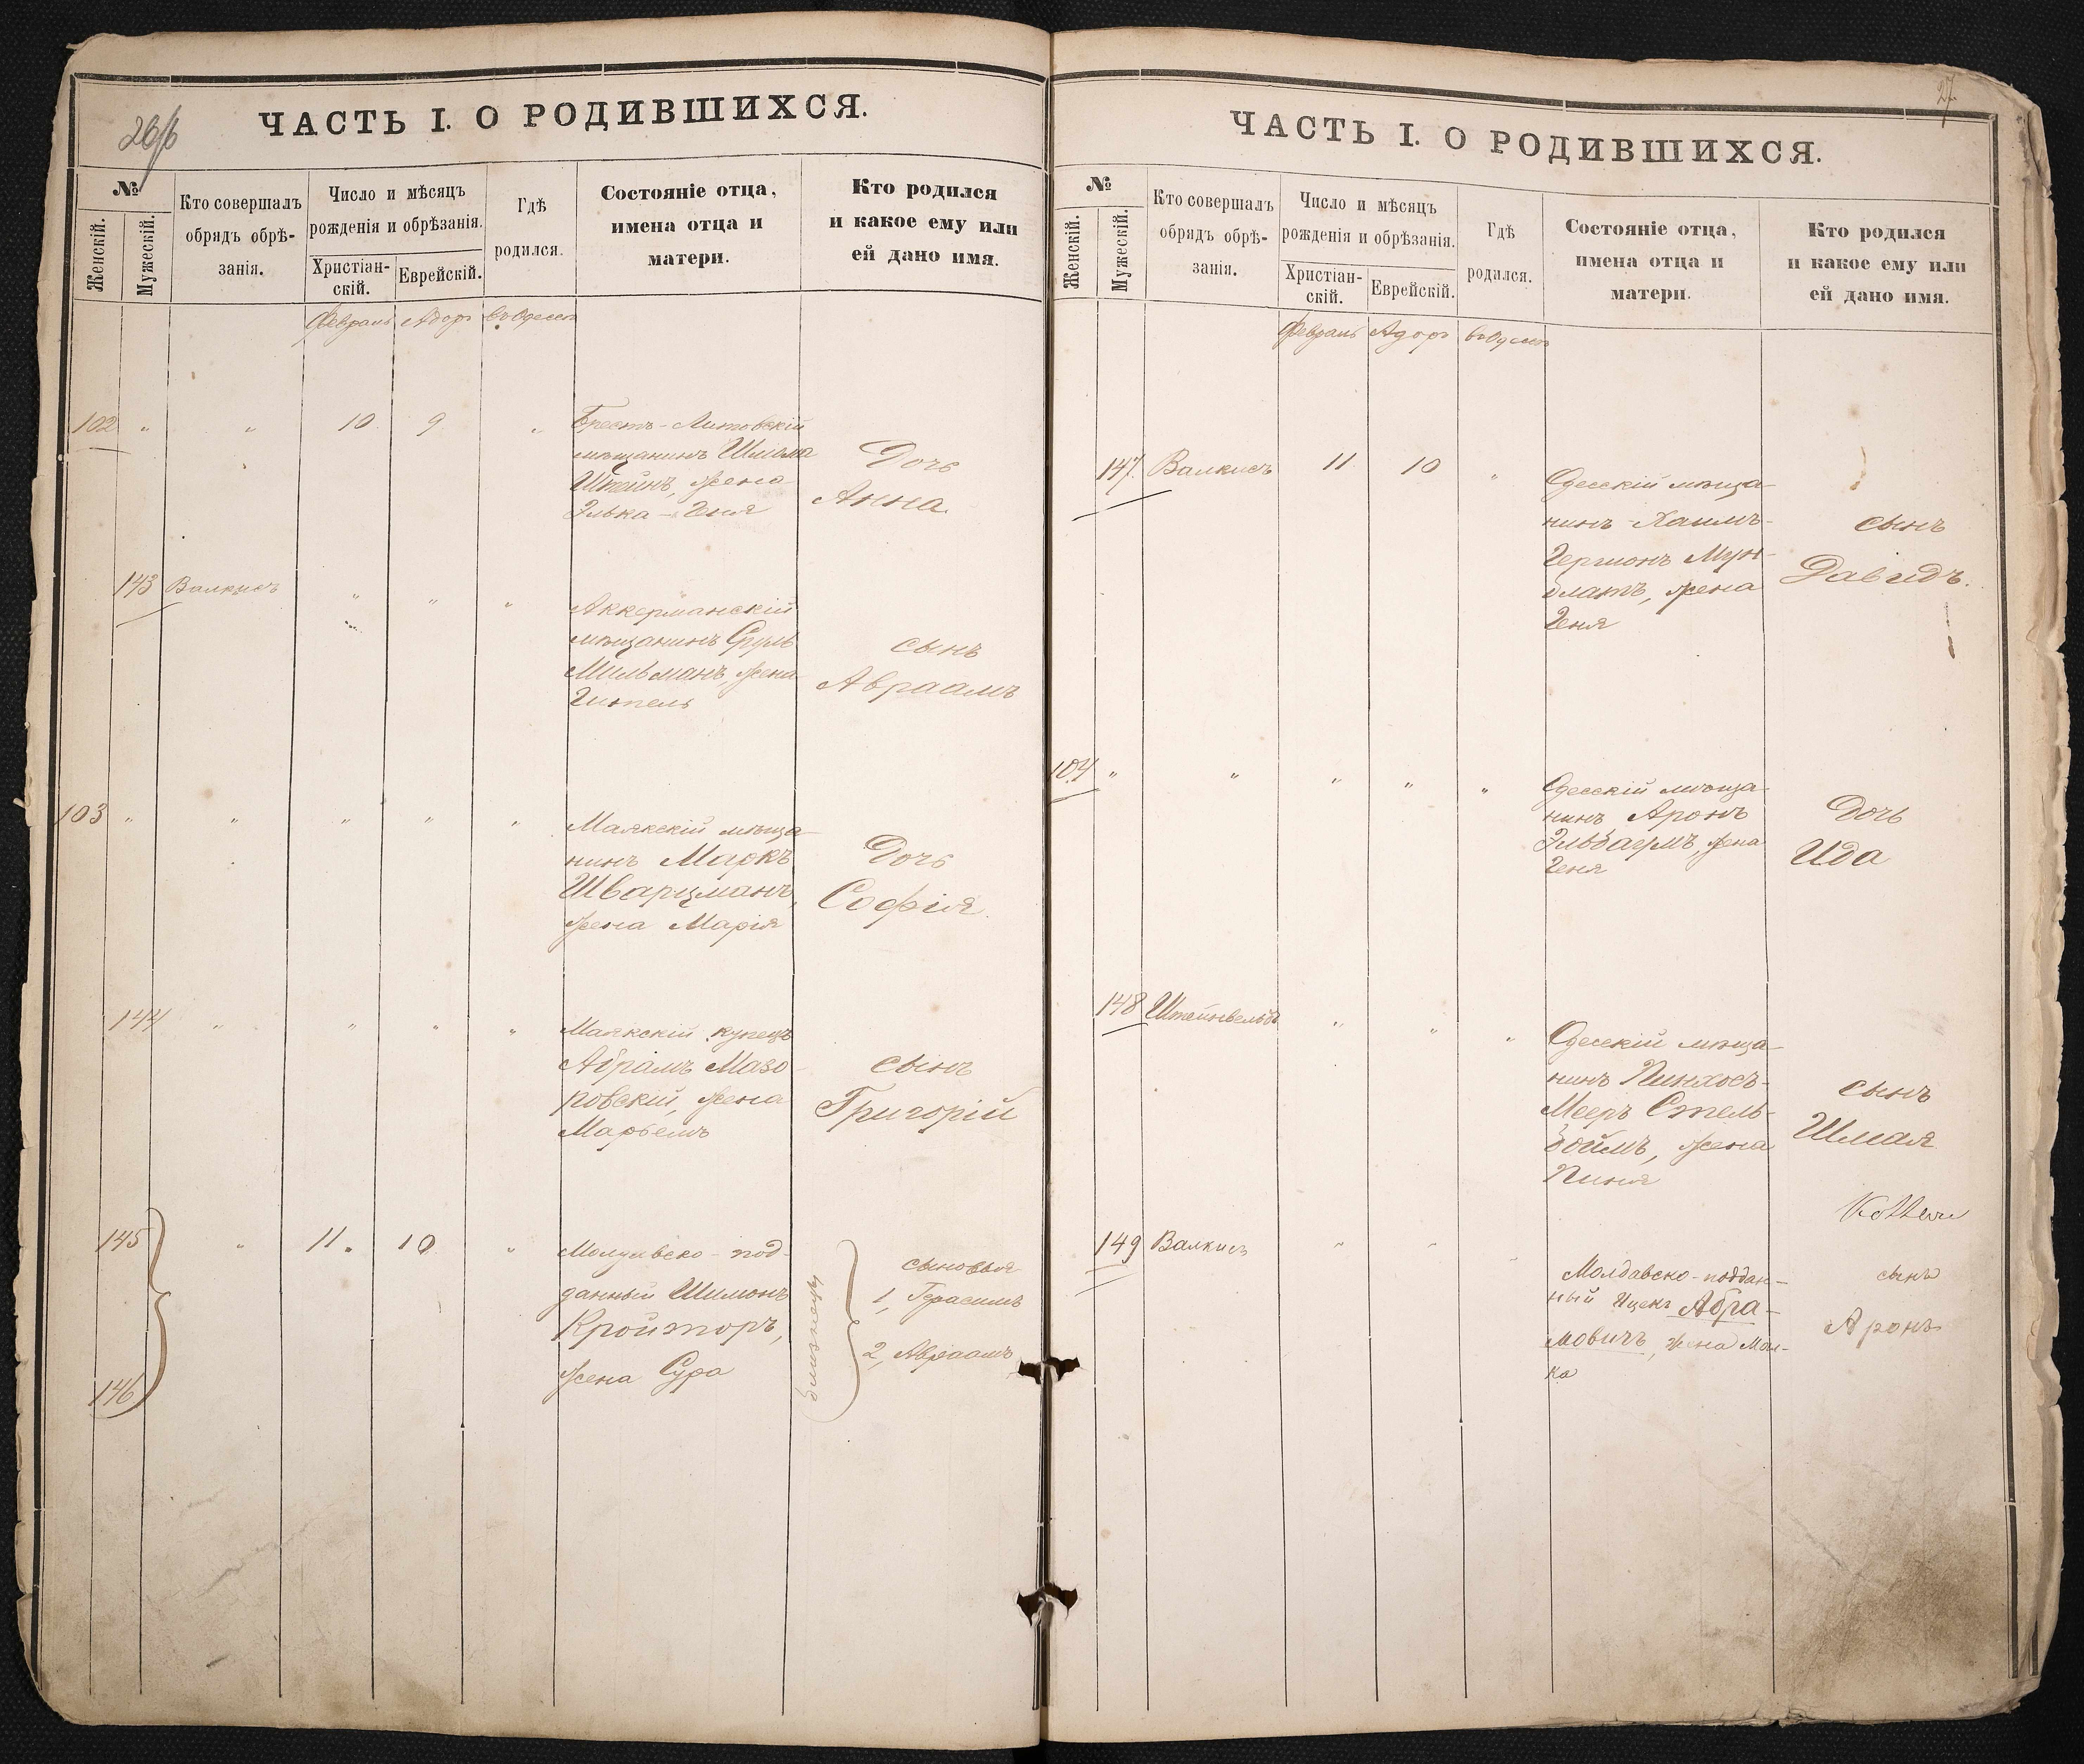 26/б
ЧАСТЬ I. О РОДИВШИХСЯ.
№
Женскій.
Мужескій.
Кто совершалъ
обрядъ обрѣ-
занія.
Число и мѣсяцъ
рожденія и обрѣзанія.
Христіан-
скій.
Еврейскій.
Гдѣ
родился.
Состояніе отца,
имена отца и
матери.
Кто родился
и какое ему или
ей дано имя.
Февраль Адоръ въ Одессѣ
102 " " 10 9 "
Брестъ-Литовскій
мѣщанинъ Шлема
Штейнъ, жена
Элька-Геня
Дочь
Анна
143 Валкисъ " " "
Аккерманскій
мѣщанинъ Сруль
Мильманъ, жена
Гитель
сынъ
Авраамъ
103 " " " " "
Маякскій мѣща-
нинъ Маркъ
Шварцманъ,
жена Марія
Дочь
Софія.
144 " " " "
Маякскій купецъ
Абрамъ Мазо-
ровскій, жена
Марьемъ
сынъ
Григорій
145 " 11. 10 "
146
Молдавско-под-
данный Шимонъ
Кройторъ,
жена Сура
близнецы
сыновья
1, Герасимъ
2, Авраамъ
27.
ЧАСТЬ I. О РОДИВШИХСЯ.
№
Женскій.
Мужескій.
Кто совершалъ
обрядъ обрѣ-
занія.
Число и мѣсяцъ
рожденія и обрѣзанія.
Христіан-
скій.
Еврейскій.
Гдѣ
родился.
Состояніе отца,
имена отца и
матери.
Кто родился
и какое ему или
ей дано имя.
Февраль Адоръ въ Одессѣ
147. Валкисъ 11 10 "
Одесскій мѣща-
нинъ Хаимъ-
Гершонъ Мун-
блатъ, жена
Геня
сынъ
Давидъ.
104 " " " " "
Одесскій мѣща-
нинъ Аронъ
Эльбаумъ, жена
Геня
Дочь
Ида
148 Штейнвельдъ " " "
Одесскій мѣща-
нинъ Пинхосъ-
Мееръ Стель-
боймъ, жена
Пиня
сынъ
Шмая
149 Валкисъ " " "
Молдавско-поддан-
ный Ицекъ Абра-
мовичъ, жена Мал-
ка
сынъ
Аронъ